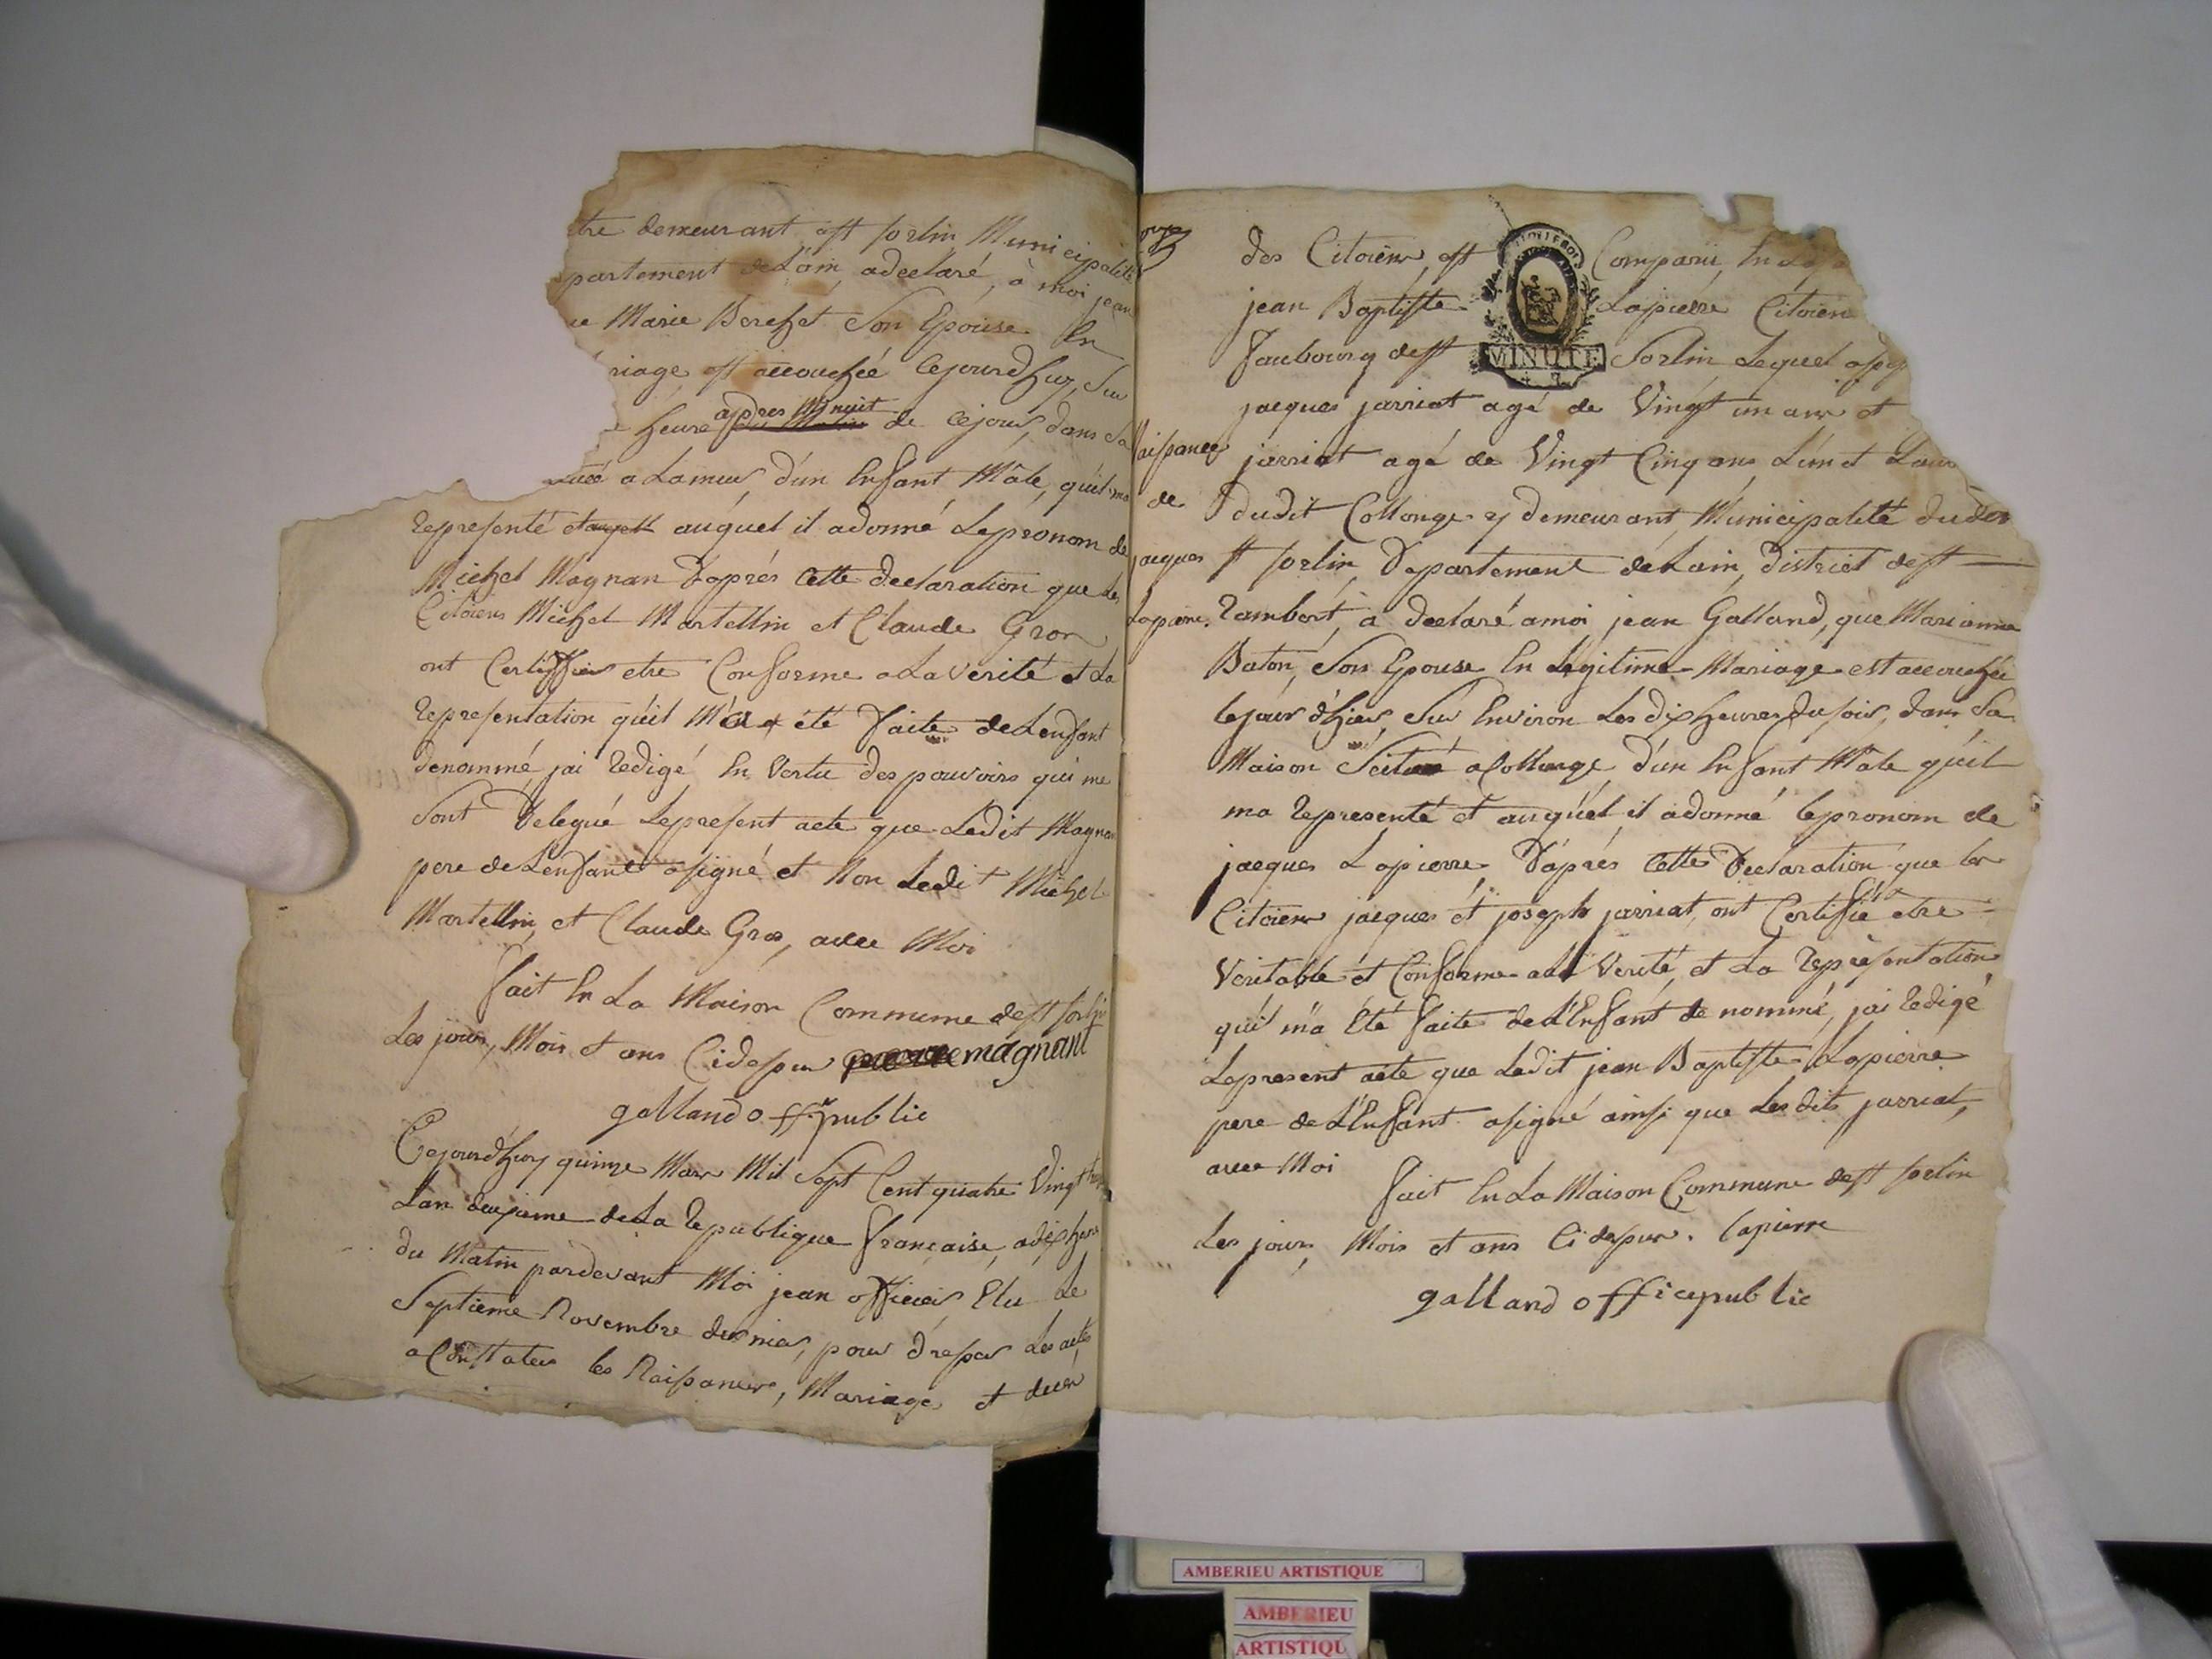 tre demeurant, est sorlin, Municipalité
partement de L'ain, adeclaré, à moi jean
ue Marie Berchet Son Epouse En
riage est accouchée Cejourd'huy, Sur
heure apres Minuit de Cejour, dans Sa
a Lameur, d'un Enfant Mâle, qu'il ma
representé et auquel il adonné Lepronom de
Michel Magnan D'aprés Cette declaration que Les
Citoiens Michel Martellin et Claude Gron
ont Certiffier etre Conforme a La Verité et La
representation qu'il M'a été faite de Lenfant
denommé, jai redigé En Vertu des pouvoirs qui me
Sont Delegué Lepresent acte que Ledit Magnan
pere de Lenfant asigné et Non Ledit Michel
Martellin, et Claude Gros, avec Moi
fait En La Maison Commune dest sorlin
Les jours, Mois et ans Cidessus magnant
galland off.r public
Cejourd'huy quinze Mars Mil Sept Cent quatre Vingt treize
Lan deuxieme de La republique française, adix heures
du Matin pardevant Moi jean officier Elu Le
Septieme Novembre dernier, pour dresser Les actes
a Constater les Naissances, Mariages et decés
des Citoiens, est Comparu, En
jean Baptiste Lapierre Citoien
faubourg dest Sorlin Lequel
MINUTE
jacques jarriat agé de Vingt un ans et
jarriat agé de Vingt Cinq ans L'un et
dudit Collonge y demeurant, Municipalité dudit
st sorlin, Departement de Lain, district dest
rambert, à declaré amoi jean Galland, que Marianne
Baton, Son Epouse En Legitime Mariage est accouchée
lejour d'hier, Sur Environ Les dix heures dusoir, dans Sa
Maison Scitué a Collonge, d'un Enfant Mâle qu'il
ma representé et auquél il adonné lepronom de
jacques Lapierre, D'aprés Cette Declaration que les
Citoiens jacques ét joseph jarriat, ont Certifié etre
Veritable ét Conforme ala Verité, et La representation
qui m'a Eté faite de L'Enfant de nommé, jai redigé
Lepresent acte que Ledit jean Baptiste Lapierre
pere de L'Enfant asigné ainsi que Les dits jarriat,
avec Moi
fait En La Maison Commune dest sorlin
Les jours, Mois et ans Cidessus. lapierre
galland officepublic
Naissance
de
jacques
Lapierre.
AMBERIEU ARTISTIQUE
AMBERIEU
ARTISTIQU